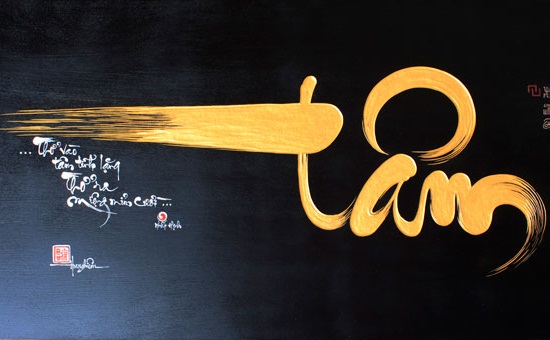 tâm
... Thở vào
tâm tĩnh lặng
Thở ra
miệng mỉm cười ...